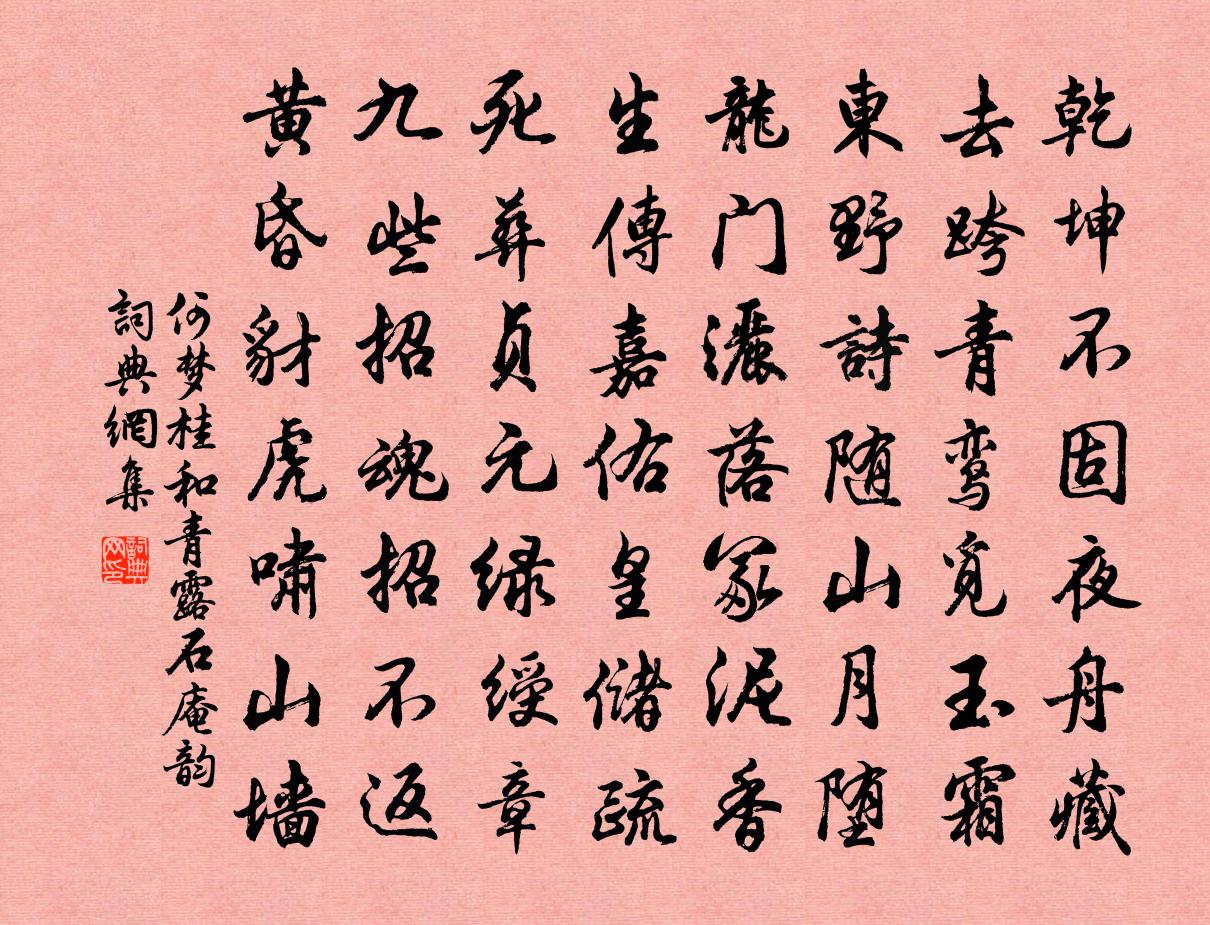 乾坤不固夜舟藏
去跨青鸾觅玉霜
東野詩随山月堕
龍门灑落冢泥香
生傳嘉佑皇儲疏
死葬贞元绿绶章
九些招魂招不返
黄昏豺虎啸山墙
何梦桂和青露石庵韵
詞典網集
詞典网印